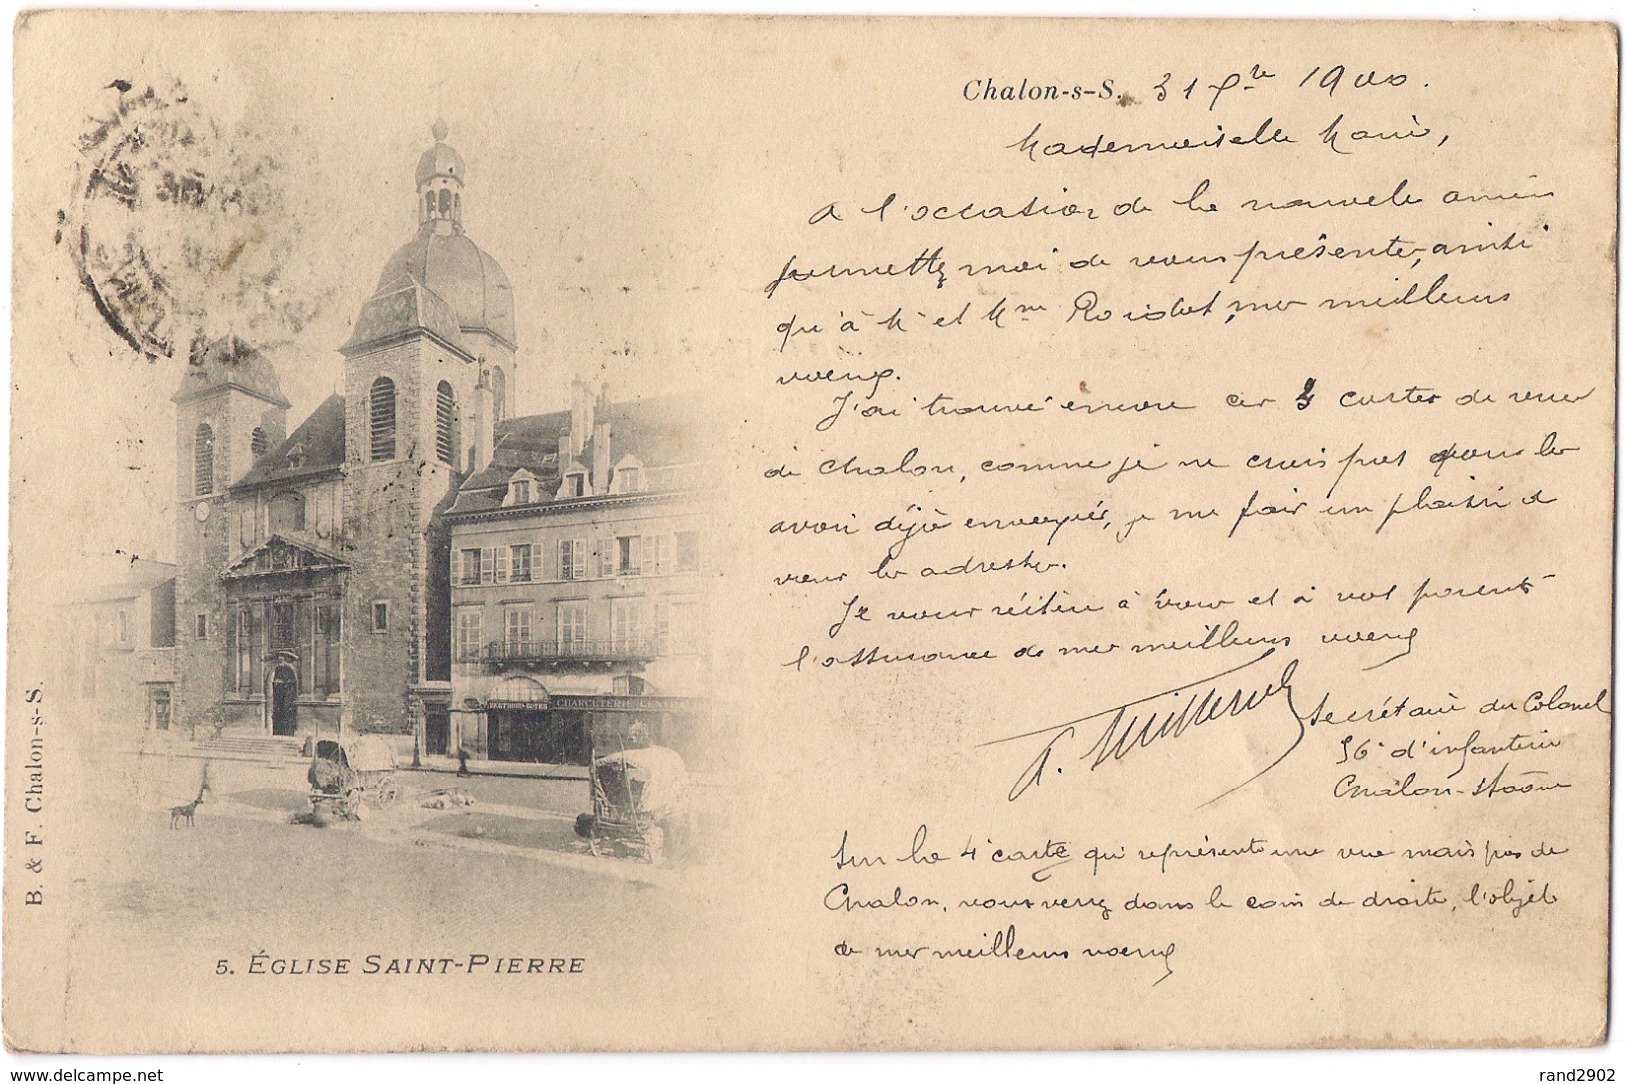 Chalon-s-S. 31 Xbre 1900.
Mademoiselle Marie,
A l'occasion de la nouvelle année
permettez moi de vous présenter, ainsi
qu'à Mr et Mme Roidot, mes meilleurs
voeux.
J'ai trouvé encore ces 3 cartes de vues
de Chalon, comme je ne crois pas vous les
avoir déjà envoyées, je me fais un plaisir de
vous les adresser.
Je vous réitère à vous et à vos parents
l'assurance de mes meilleurs voeux
Secrétaire du Colonel
56e d'infanterie
Chalon-s-Saône
Sur la 4e carte qui représente une vue mais pas de
Chalon, vous verrez dans le coin de droite, l'objet
de mes meilleurs voeux
BERTHOUD-BOYER
CHARCUTERIE CENTR
B. & F. Chalon-s-S.
5. ÉGLISE SAINT-PIERRE
www.delcampe.net
rand2902